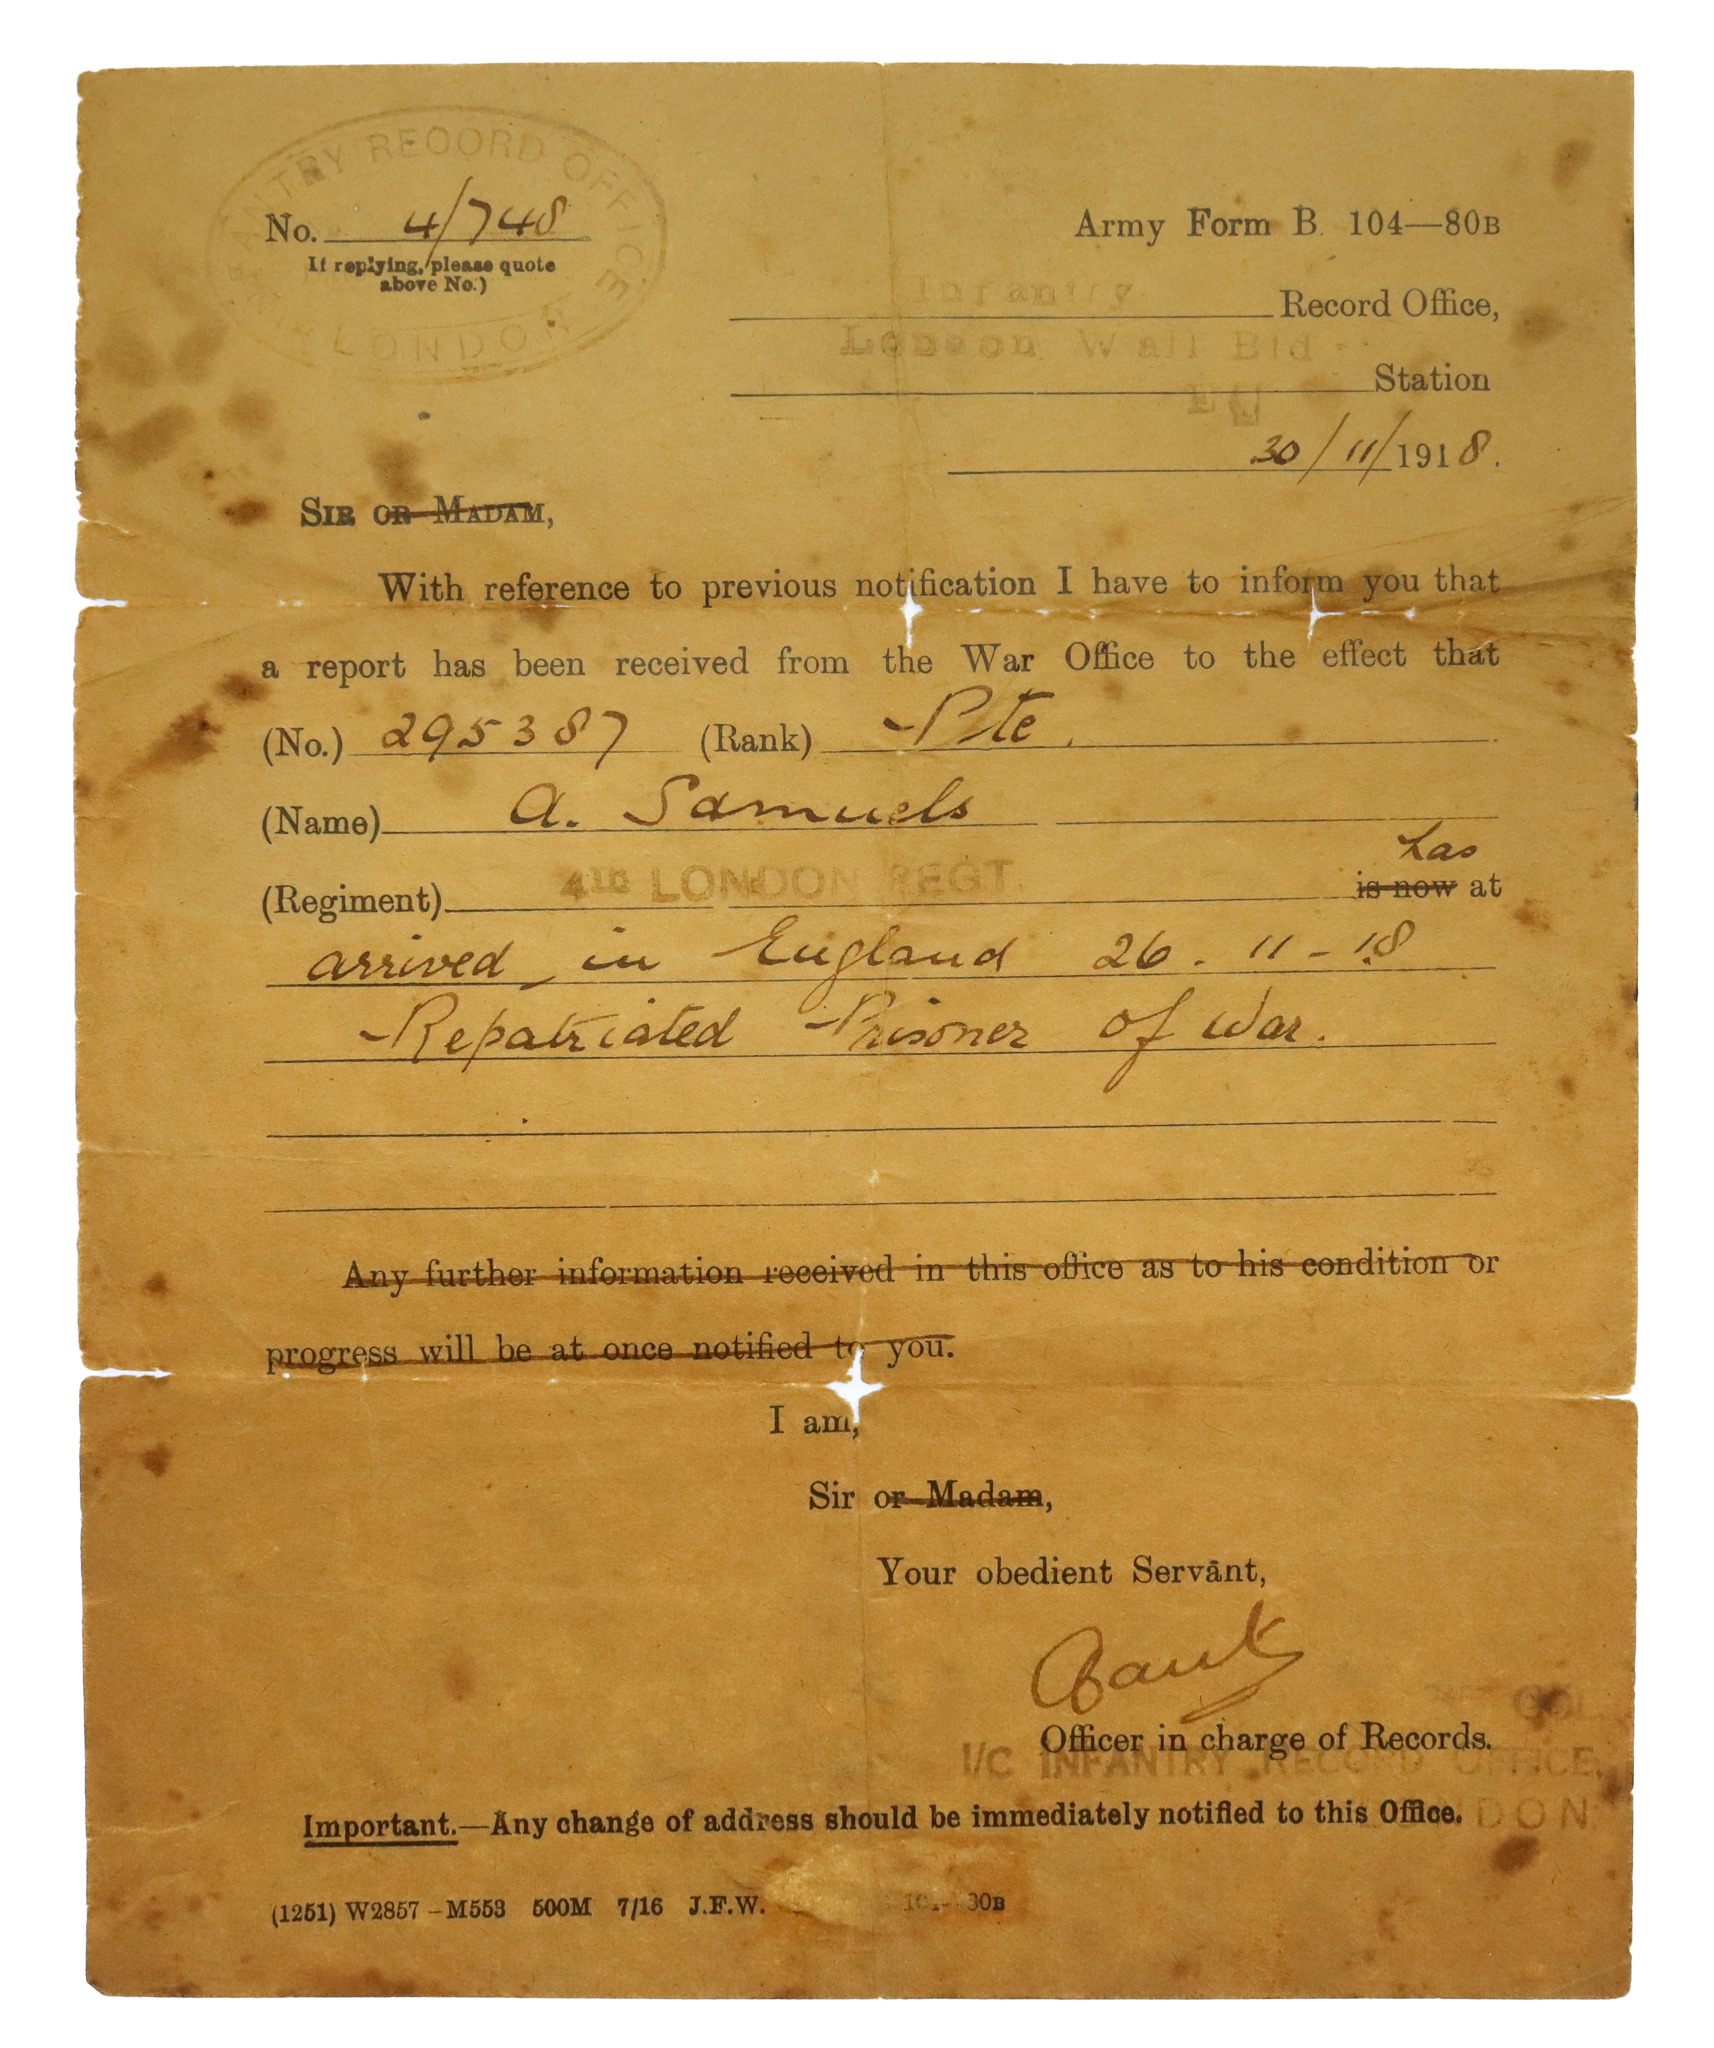 INFANTRY RECORD OFFICE
LONDON
No. 4/748
If replying, please quote
above No.)
Army Form B. 104—80B
Infantry Record Office,
London Wall Bld
Station
E C
30/11/1918.
SIR OR MADAM,
With reference to previous notification I have to inform you that
a report has been received from the War Office to the effect that
(No.) 295387 (Rank) Pte.
(Name) A. Samuels
has
(Regiment) 4TH LONDON REGT. is now at
arrived in England 26-11-18
Repatriated Prisoner of War.
Any further information received in this office as to his condition or
progress will be at once notified to you.
I am,
Sir or Madam,
Your obedient Servant,
COL.
Officer in charge of Records.
I/C INFANTRY RECORD OFFICE,
Important.—Any change of address should be immediately notified to this Office.
LONDON
(1251) W2857—M553 500M 7/16 J.F.W.